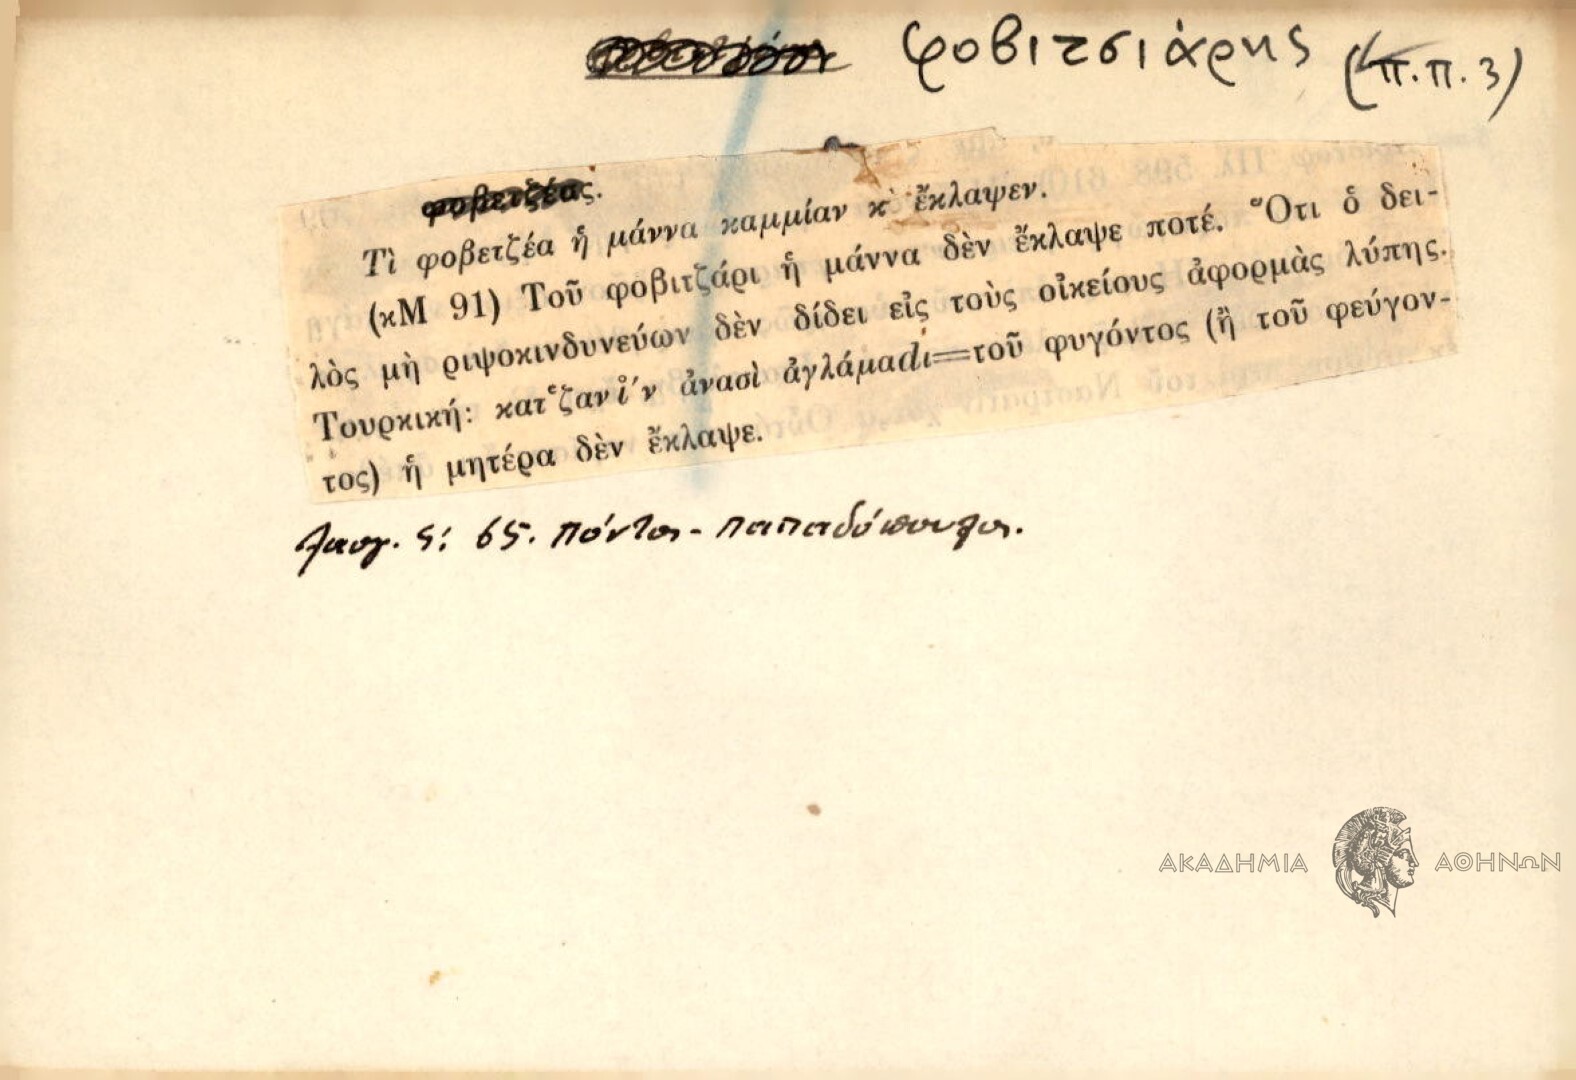 φοβιτσιάρης (π.π. 3)
φοβετζέας.
Τὶ φοβετζέα ἡ μάννα καμμίαν κ̓ ἔκλαψεν.
(κΜ 91) Τοῦ φοβιτζάρι ἡ μάννα δὲν ἔκλαψε ποτέ. Ὅτι ὁ δει-
λὸς μὴ ριψοκινδυνεύων δὲν δίδει εἰς τοὺς οἰκείους ἀφορμὰς λύπης.
Τουρκική: ἀνασὶ ἀγλάμαdι=τοῦ φυγόντος (ἢ τοῦ φεύγον-
τος) ἡ μητέρα δὲν ἔκλαψε.
Λαογ. 65. Πόντος - Παπαδόπουλος.
ΑΚΑΔΗΜΙΑ ΑΘΗΝΩΝ